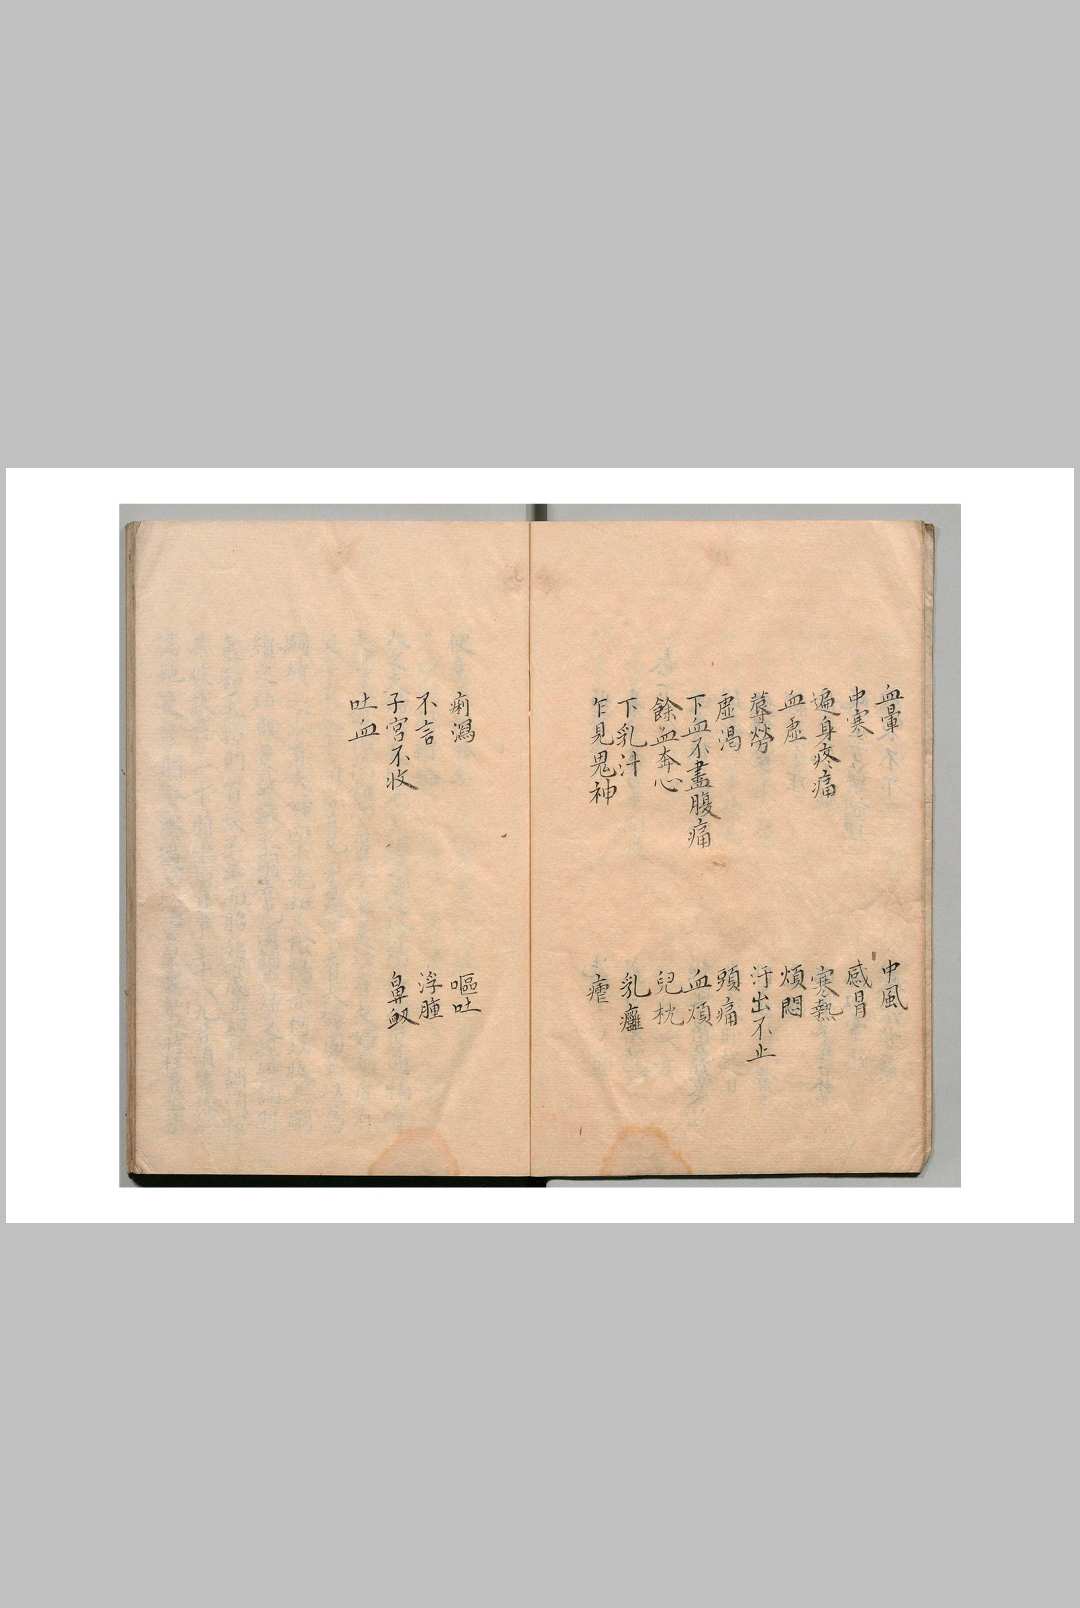 血暈　中風
中寒　感冒
遍身疼痛　寒熱
血虛　煩悶
蓐勞　汗出不止
虛渴　頭痛
下血不盡腹痛　血煩
餘血奔心　兒枕
下乳汁　乳癰
乍見鬼神　瘧
痢瀉　嘔吐
不言　浮腫
子宮不收　鼻衂
吐血